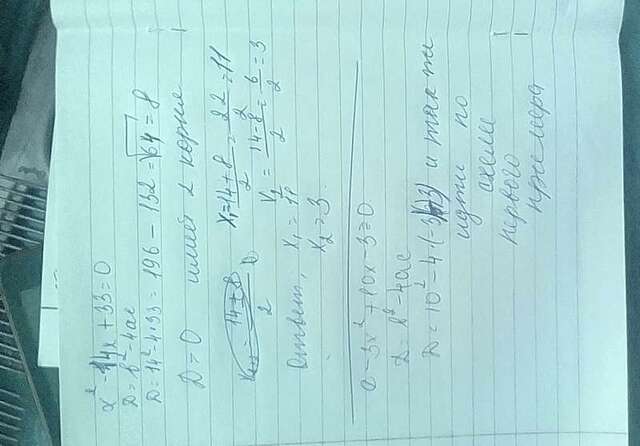 x² - 14x + 33 = 0
D = b² - 4ac
D = 14² - 4·33 = 196 - 132 = √64 = 8
D = 0 имеет 2 корня
14 + 8
2
x₁ = 14 + 8 / 2 = 22 / 2 = 11
x₂ = 14 - 8 / 2 = 6 / 2 = 3
Ответ: x₁ = 11
x₂ = 3.
-3x² + 10x - 3 = 0
D = b² - 4ac
D = 10² - 4 и так же
идти по
схеме
первого
примера